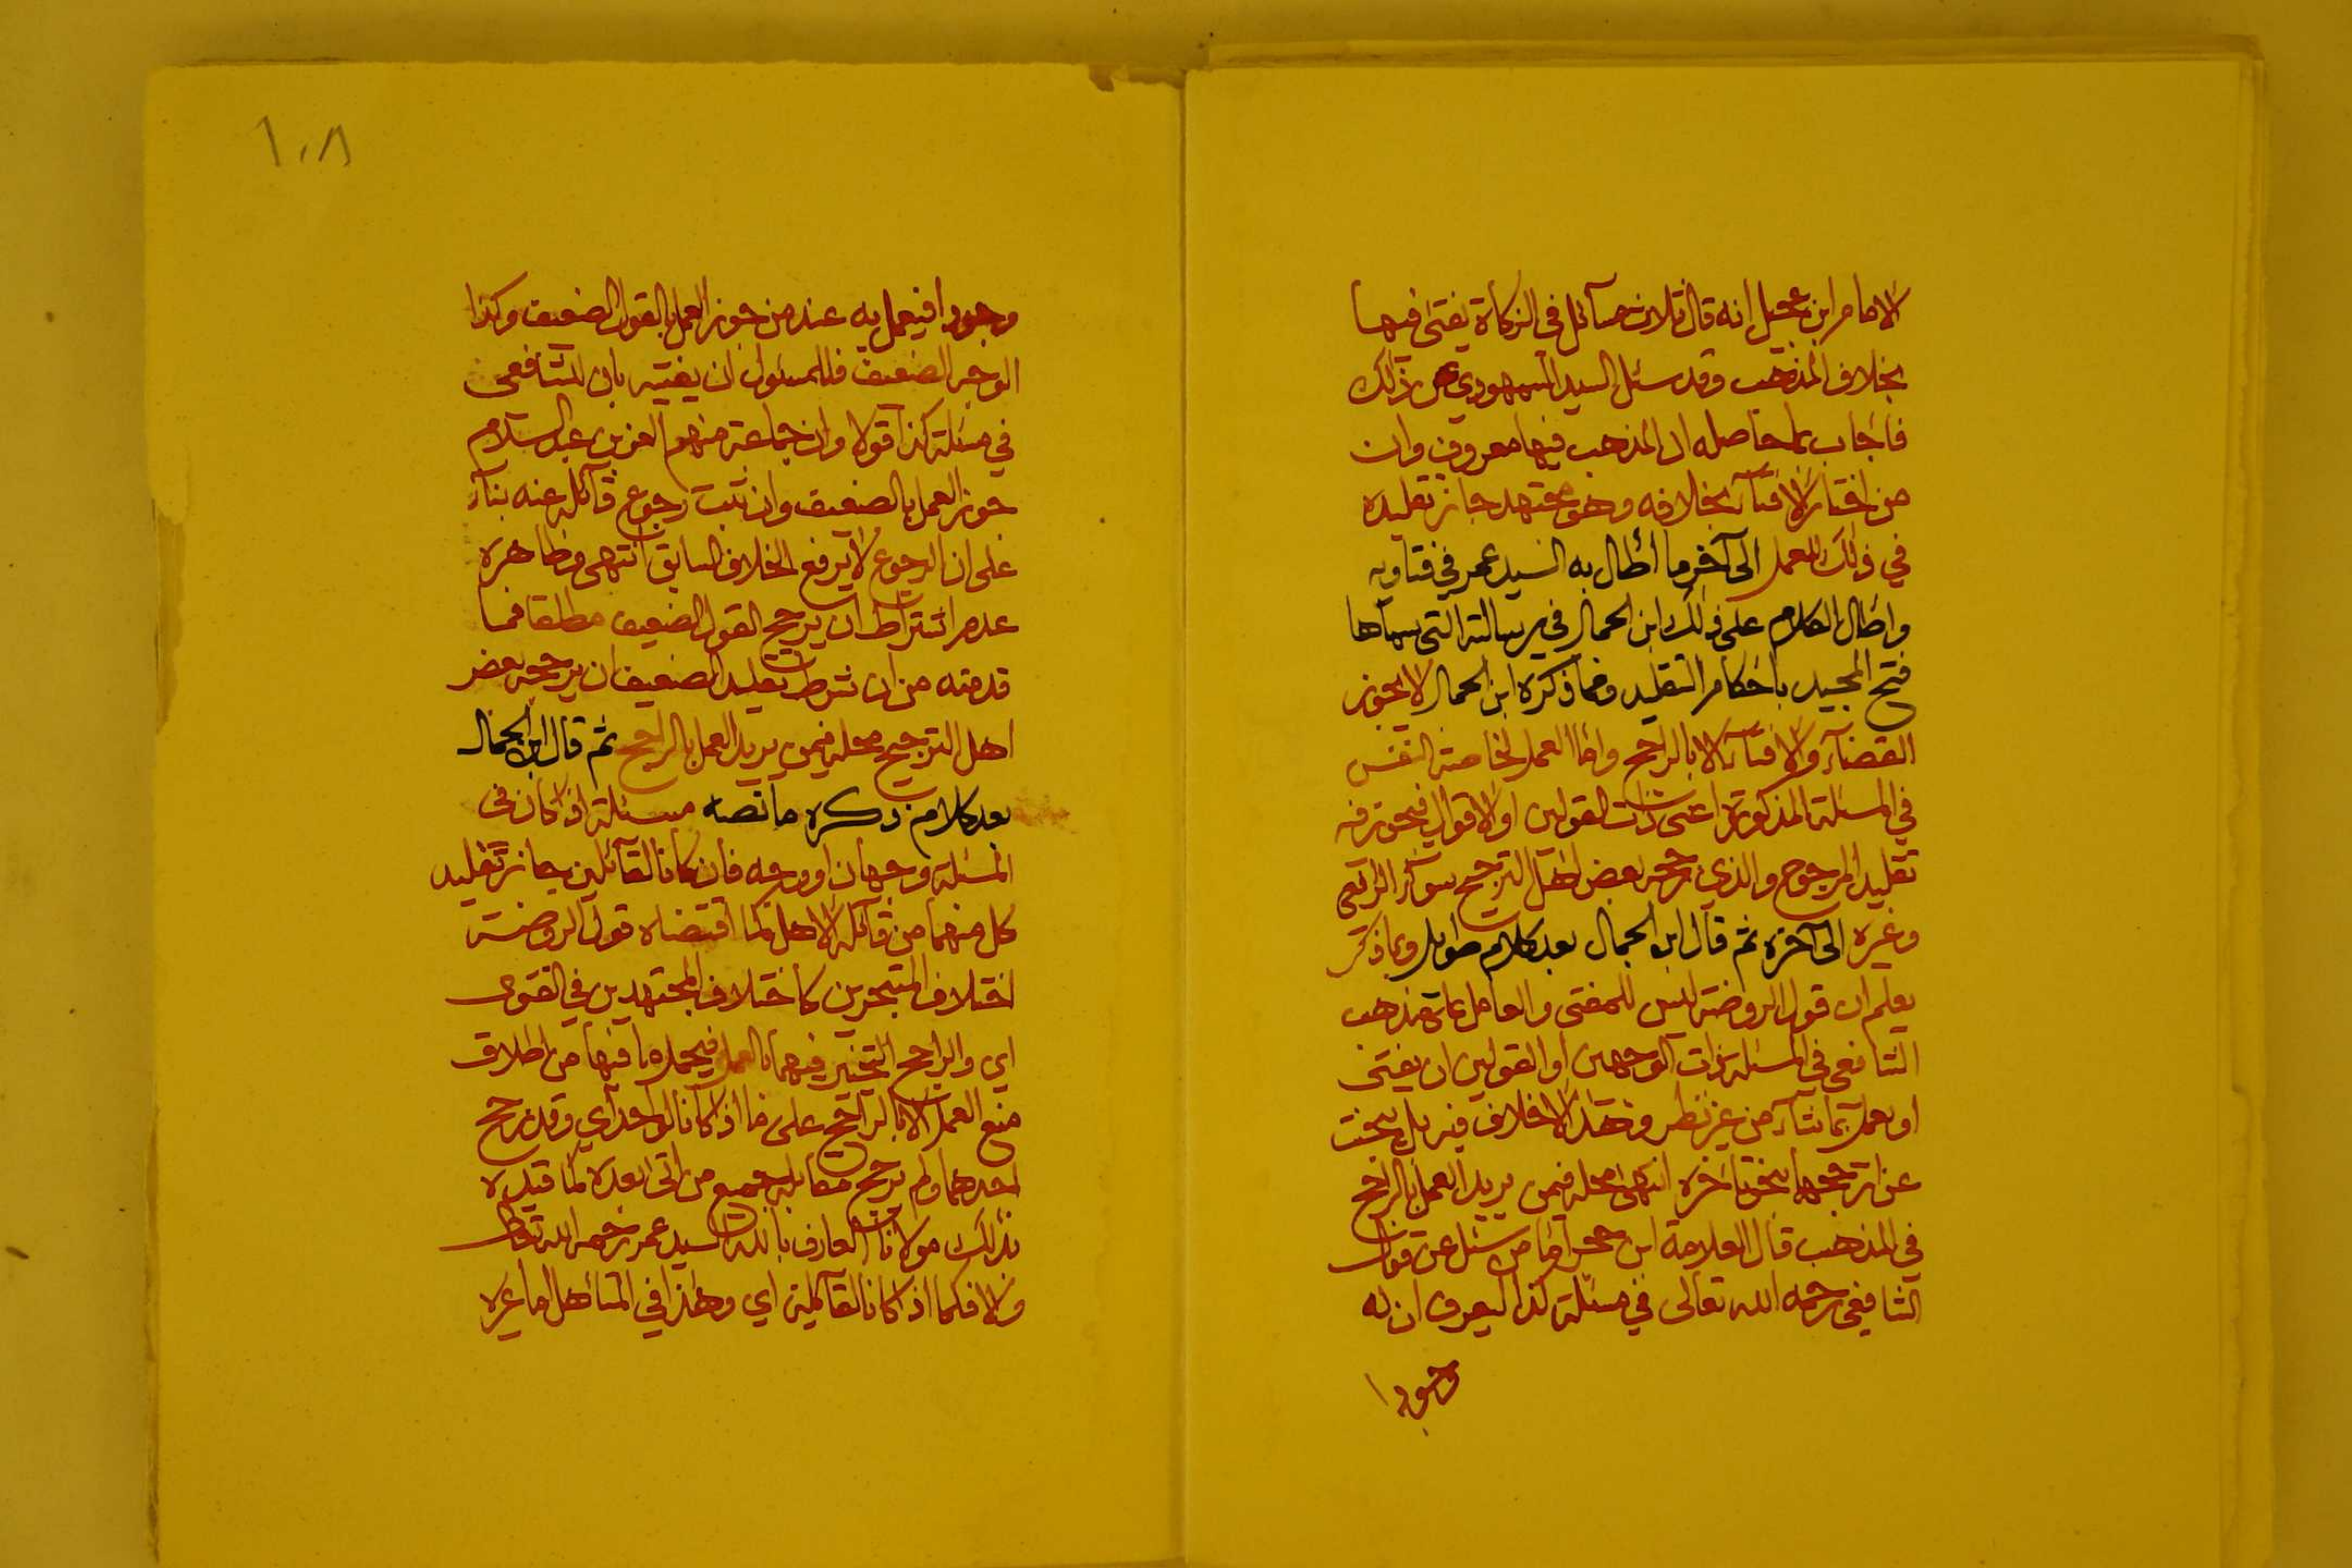 الامام ابن عجيل انه قال ثلاث مسائل في الزكاة يفتى فيها
بخلاف المذهب وقد سئل السيد السمهودي عن ذلك
فاجاب بما حاصله ان المذهب فيها معروف وان
من اختار الافتآء بخلافه وهو مجتهد جاز تقليده
في ذلك للعمل الى آخر ما أطال به السيد عمر في فتاويه
واطال الكلام على ذلك ابن الجمال في رسالته التي سماها
فتح المجيد باحكام التقليد ومما ذكره ابن الجمال لا يجوز
القضآء والافتآء الا بالراجح واما العمل لخاصة النفس
في المسئلة المذكورة اعني ذات القولين او الاقوال فيجوز فيه
تقليد المرجوح والذي رجحه بعض اهل الترجيح سوآء الرافعي
وغيره الى آخره ثم قال ابن الجمال بعد كلام طويل وبما ذكر
يعلم ان قول الروضة ليس للمفتي والعامل على مذهب
الشافعي في المسئلة ذات الوجهين او القولين ان يفتى
او يعمل بما شآء من غير نظر وهذا لا خلاف فيه بل يبحث
عن ارجحهما بنحو تأخره انتهى محله فيمن يريد العمل بالراجح
في المذهب قال العلامة ابن حجر اما من سئل عن قول
الشافعي رحمه الله تعالى في مسئلة كذا ليعرف ان له
وجودا
١٠٨
وجودا فيعمل به عند من جوز العمل بالقول الضعيف وكذا
الوجه الضعيف فللمسئول ان يفتيه بان للشافعي
في مسئلة كذا قولا وان جماعة منهم العز بن عبد السلام
جوز العمل بالضعيف وان ثبت رجوع قآئله عنه بنآء
على ان الرجوع لا يرفع الخلاف السابق انتهى وظاهره
عدم اشتراط ان يرجح القول الضعيف مطلقا فما
قدمته من ان شرط تقليد الضعيف ان يرجحه بعض
اهل الترجيح محله فيمن يريد العمل بالراجح ثم قال ابن الجمال
بعد كلام ذكره ما نصه مسئلة اذا كان في
المسئلة وجهان او اوجه فان كانا لقآئلين جاز تقليد
كل منهما من قآئله الاهل كما اقتضاه قول الروضة
اختلاف المتبحرين كاختلاف المجتهدين في الفتوى
اي والراجح التخيير فيهما بالعمل فيحمل ما فيها من اطلاق
منع العمل الا بالراجح على ما اذا كانا لواحد اي وقد رجح
احدهما ولم يرجح مقابله جميع من اتى بعده كما قيده
بذلك مولانا العارف بالله السيد عمر رحمه الله تعالى
والا فكما اذا كانا لقآئلين اي وهذا في المتأهل اما غيره